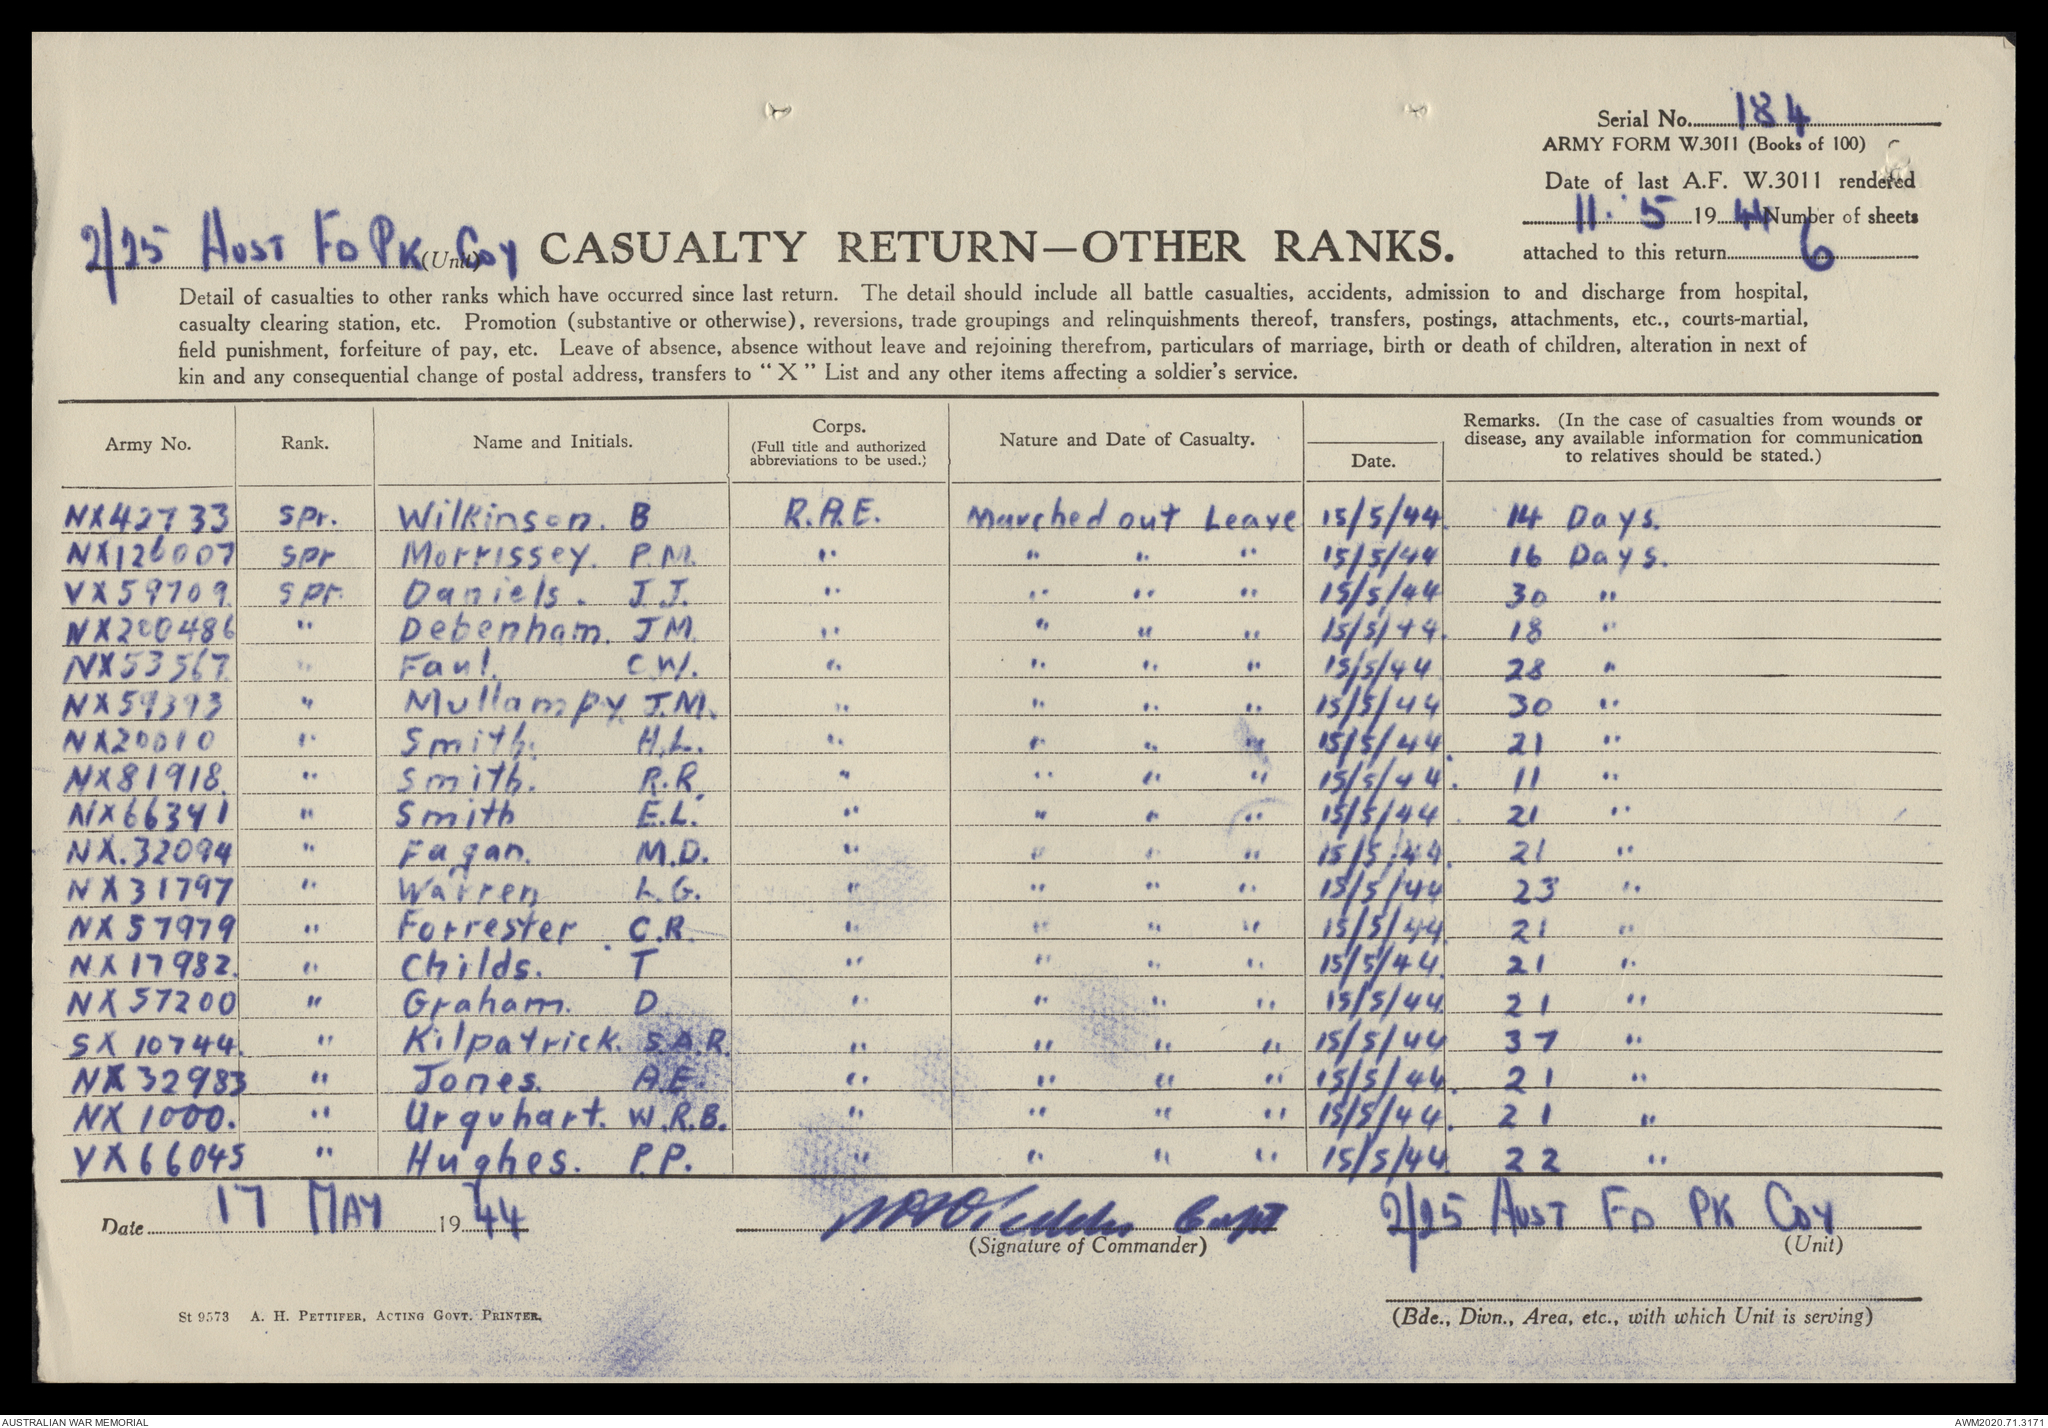 Serial No. 184
ARMY FORM W.3011 (Books of 100)
Date of last A.F. W.3011 rendered
11. 5 19 44 Number of sheets
attached to this return 6
2/25 Aust Fd Pk Coy (Unit) CASUALTY RETURN—OTHER RANKS.
Detail of casualties to other ranks which have occurred since last return. The detail should include all battle casualties, accidents, admission to and discharge from hospital,
casualty clearing station, etc. Promotion (substantive or otherwise), reversions, trade groupings and relinquishments thereof, transfers, postings, attachments, etc., courts-martial,
field punishment, forfeiture of pay, etc. Leave of absence, absence without leave and rejoining therefrom, particulars of marriage, birth or death of children, alteration in next of
kin and any consequential change of postal address, transfers to "X" List and any other items affecting a soldier's service.
Army No. Rank. Name and Initials. Corps. (Full title and authorized abbreviations to be used.) Nature and Date of Casualty. Date. Remarks. (In the case of casualties from wounds or disease, any available information for communication to relatives should be stated.)
NX42733 Spr. Wilkinson. B R.A.E. Marched out Leave 15/5/44. 14 Days.
NX126007 Spr Morrissey. P.M. " " " " 15/5/44 16 Days.
VX59709. Spr. Daniels. J.J. " " " " 15/5/44 30 "
NX200486 " Debenham. J.M. " " " " 15/5/44. 18 "
NX53567. " Faul. C.W. " " " " 15/5/44 28 "
NX59393 " Mullampy J.M. " " " " 15/5/44 30 "
NX20010 " Smith. H.L. " " " " 15/5/44. 21 "
NX81918. " Smith. R.R. " " " " 15/5/44. 11 "
NX66341 " Smith E.L. " " " " 15/5/44. 21 "
NX.32094 " Fagan. M.D. " " " " 15/5/44. 21 "
NX31797 " Warren L.G. " " " " 15/5/44 23 "
NX57979 " Forrester C.R. " " " " 15/5/44. 21 "
NX17982. " Childs. T " " " " 15/5/44. 21 "
NX57200 " Graham. D " " " " 15/5/44. 21 "
SX10744. " Kilpatrick. S.A.R. " " " " 15/5/44 37 "
NX32983 " Jones. A.E. " " " " 15/5/44. 21 "
NX1000. " Urquhart. W.R.B. " " " " 15/5/44. 21 "
VX66045 " Hughes. P.P. " " " " 15/5/44. 22 "
Date 17 May 19 44 Capt 2/25 Aust Fd Pk Coy
(Signature of Commander) (Unit)
St 9573 A. H. PETTIFER, ACTING GOVT. PRINTER.
(Bde., Divn., Area, etc., with which Unit is serving)
AUSTRALIAN WAR MEMORIAL AWM2020.71.3171